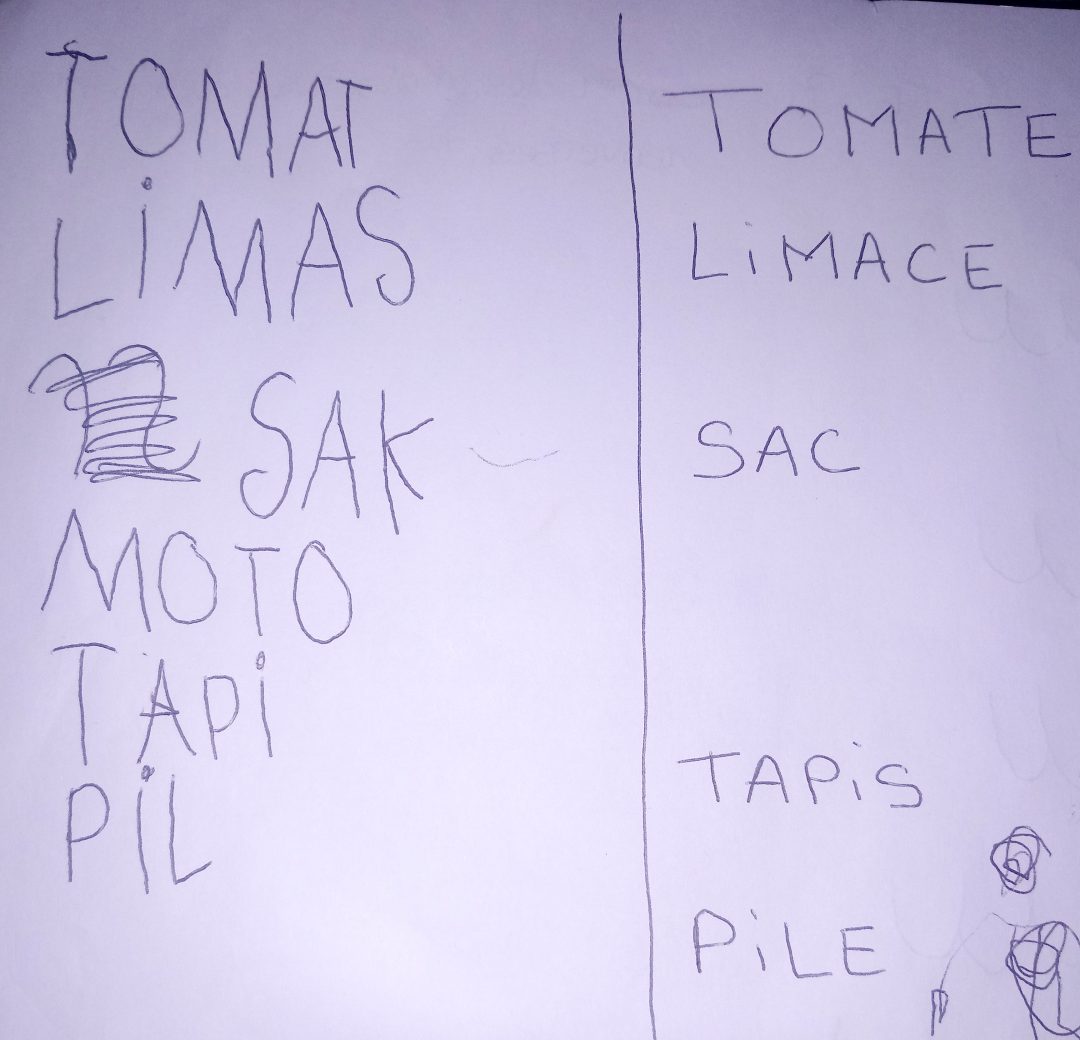 TOMAT TOMATE
LiMAS LiMACE
SAK SAC
MOTO
TAPi TAPiS
PiL PiLE